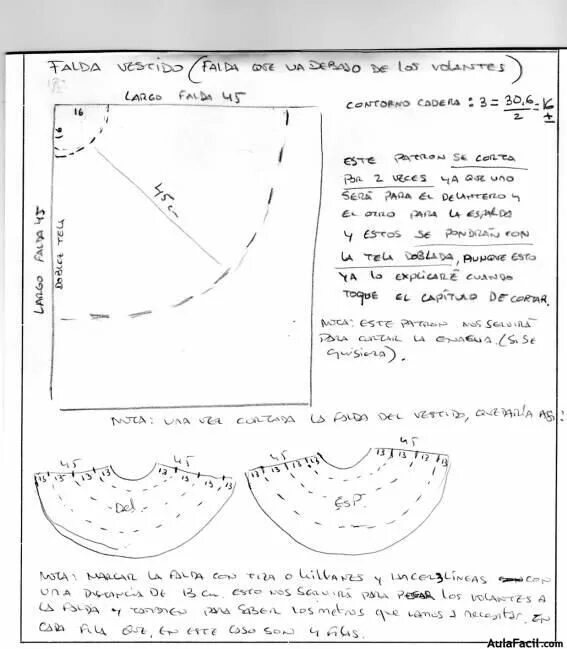 FALDA VESTIDO (FALDA QUE VA DEBAJO DE LOS VOLANTES)
LARGO FALDA 45
16
16
45 cm
LARGO FALDA 45
DOBLEZ TELA
CONTORNO CADERA : 3 = 30,6 = 16
2 ±
ESTE PATRON SE CORTA
POR 2 VECES YA QUE UNO
SERÁ PARA EL DELANTERO Y
EL OTRO PARA LA ESPALDA
Y ESTOS SE PONDRÁN CON
LA TELA DOBLADA, AUNQUE ESTO
YA LO EXPLICARÉ CUANDO
TOQUE EL CAPÍTULO DE CORTAR.
NOTA: ESTE PATRON NOS SERVIRÁ
PARA CORTAR LA ENAGUA. (SI SE
QUISIERA).
NOTA: UNA VEZ CORTADA LA FALDA DEL VESTIDO, QUEDARÍA ASÍ:
45 45
13 13 13 13 12 13 13 13
Del.
45 45
13 13 13 13 13 13 12 13
ESP.
NOTA: MARCAR LA FALDA CON TIZA O HILVANES Y HACER 3 LÍNEAS CON
UNA DISTANCIA DE 13 cm. ESTO NOS SERVIRÁ PARA PEGAR LOS VOLANTES A
LA FALDA Y TAMBIEN PARA SABER LOS METROS QUE VAMOS A NECESITAR EN
CADA FILA QUE, EN ESTE CASO SON 4 FILAS.
AulaFacil.com